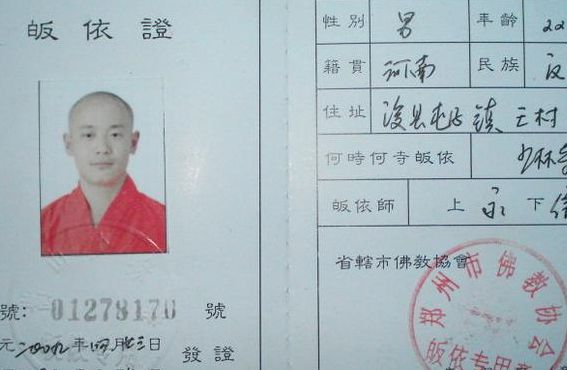 皈依證
號: 01278170 號
元二00九年四月廿三日
發證
性別 男 年齡 22
籍貫 河南 民族 汉
住址 浚县屯子镇 村
何時何寺皈依 少林寺
皈依師 上 永 下
省轄市佛教協會
郑州市佛教协会
皈依专用章